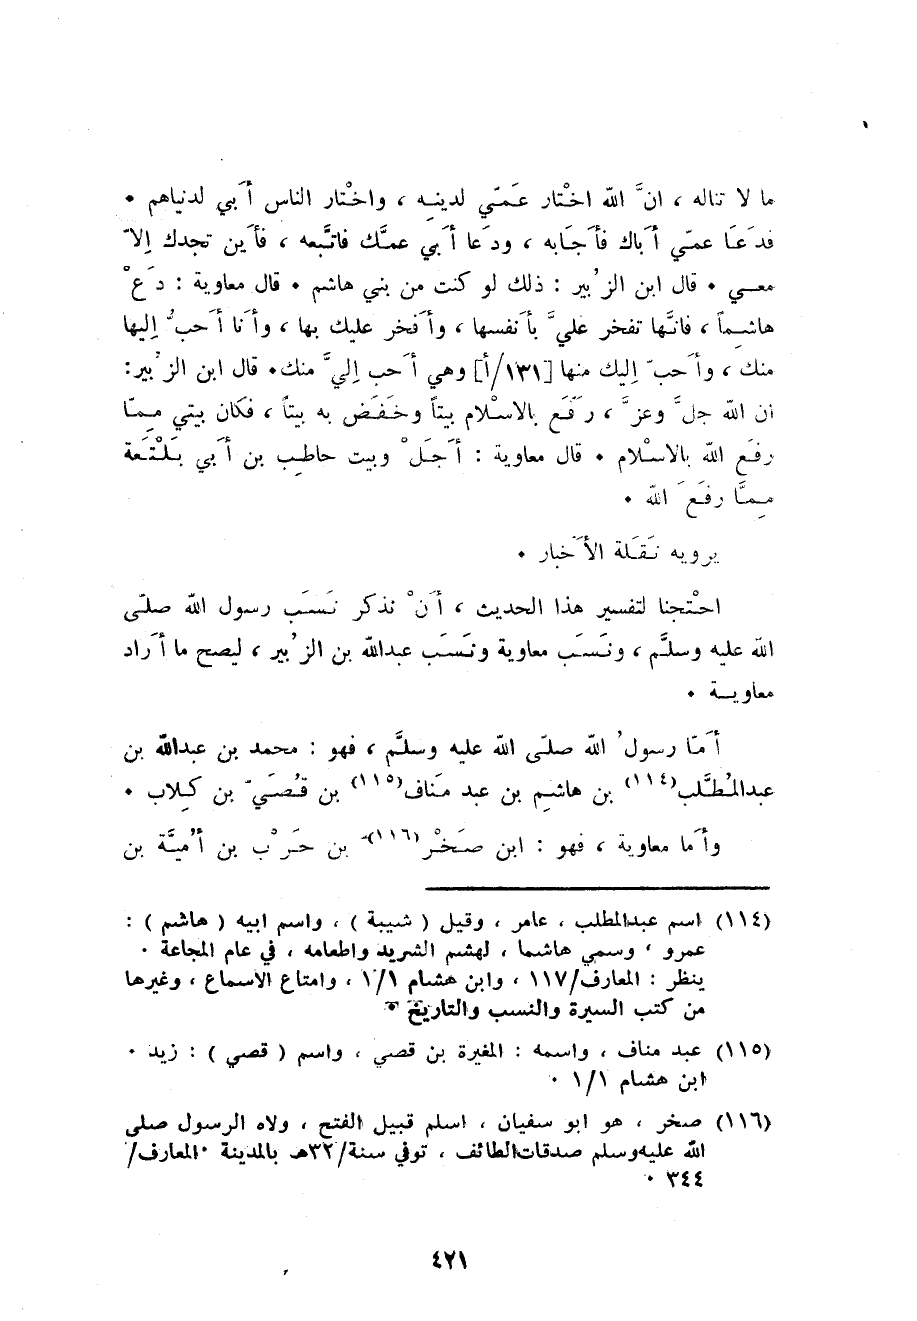 ما لا تناله ، انَّ الله اخْتار عَمّي لدينِه ، واخْتار الناس أَبي لدنياهم ٠
فدَعَا عمّي أَباك فأَجَابه ، ودَعا أَبي عمَّك فاتَّبعه ، فأَين تجدك إلاّ
معـي ٠ قال ابن الزُّبير : ذلك لو كنت من بني هاشم ٠ قال معاوية : دَعْ
هاشِماً ، فانَّها تفخر عليَّ بأَنفسها ، وأَفخر عليك بها ، وأَنا أَحبُّ إليها
منك ، وأَحبّ إليك منها [١٣١/أ] وهي أَحب إليَّ منك٠ قال ابن الزُّبير:
ان الله جلَّ وعزَّ ، رَفَع بالاسْلام بيتاً وخَفَض به بيتاً ، فكان بيتي مِمّا
رفَع اللهُ بالاسْلام ٠ قال معاوية : أَجَلْ وبيت حاطِب بن أَبي بَلْتَعة
مِمَّا رفَعَ الله ٠
يرويه نَقَلة الأَخبار ٠
احْتجنا لتفسير هذا الحديث ، أَنْ نذكر نَسَب رسول الله صلّى
الله عليه وسلَّم ، ونَسَب معاوية ونَسَب عبدالله بن الزُّبير ، ليصح ما أَراد
معاويـة ٠
أَمّا رسولُ الله صلّى الله عليه وسلَّم ، فهو : محمد بن عبدالله بن
عبدالمُطَّلب(١١٤) بن هاشِم بن عبد مَناف(١١٥) بن قُصَيّ بن كِلاب ٠
وأَما معاوية ، فهو : ابن صَخْر(١١٦) بن حَرْب بن أُميَّة بن
(١١٤) اسم عبدالمطلب ، عامر ، وقيل ( شيبة ) ، واسم ابيه ( هاشم ) :
عمرو ، وسمي هاشما ، لهشم الثريد واطعامه ، في عام المجاعة ٠
ينظر : المعارف/١١٧ ، وابن هشام ١/١ ، وامتاع الاسماع ، وغيرها
من كتب السيرة والنسب والتاريخ ٠
(١١٥) عبد مناف ، واسمه : المغيرة بن قصي ، واسم ( قصي ) : زيد ٠
ابن هشام ١/١ ٠
(١١٦) صخر ، هو ابو سفيان ، اسلم قبيل الفتح ، ولاه الرسول صلى
الله عليه‌وسلم صدقات‌الطائف ، توفي سنة/٣٢هـ بالمدينة ٠المعارف/
٣٤٤ ٠
٤٢١